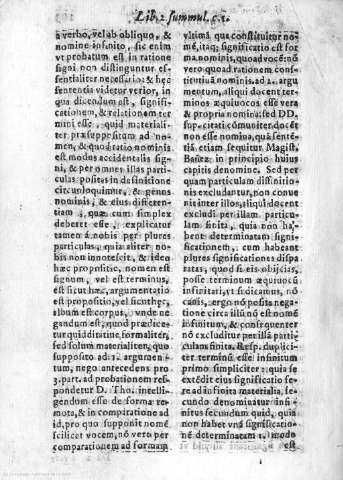 Lib. 2. summul. c. 1.
a verbo, vel ab obliquo, & a
nomine infinito, sic enim
vt probatum est in ratione
signi non distinguntur es-
sentialiter necessitas: & hec
sententia videtur verior, in
qua dicendum est, signifi-
cationem, & relationem ter
mini esse, quid materiali-
ter præsuppositum ad no-
men, & quod ratio nominis
est modus accidentalis sig-
ni, & per omnes illas parti-
culas positas in definitione
circumloquimur, & genus
nominis, & eius differen-
tiam, quæ cum simplex
deberet esse, explicatur
tamen à nobis per plures
particulas, quia aliter no-
bis non innotescit, & ideo
hæc propositio, nomen est
signum, vel est terminus,
est sicut hæc, argumentatio
est propositio, vel sicut hęc,
album est corpus, vnde ne-
gandum est, quod prædice-
tur quidditatiue, formaliter,
sed solum materialiter, quo
supposito ad 1. argumen-
tum, nego antecedens pro
3. part. ad probationem res-
pondetur D. Tho. intelli-
gendum esse de forma re-
mota, & in comparatione ad
id, pro quo supponit nomē
scilicet vocem, nõ vero per
comparationem ad formam
vltimā qua constituitur no-
mē, itaq; significatio est for
ma nominis, quoad vocē: nõ
vero quoad rationem consti-
tutiuā nominis. ad 2. argu
mentum, aliqui docent ter
minos æquiuocos esse vera
& propria nomina: sed DD.
sup. citati cõmuniter docēt
non esse nomina, quā sentē-
tiā etiam sequitur Magist.
Bañez in principio huius
capitis denomine. Sed per
quam particulam diffiniti-
onis excludantur, non conve
nit inter illos, aliqui docent
excludi per illam particu-
lam finita, quia non ha-
bent determinatam signi-
ficationem, cum habeant
plures significationes dispa-
ratas, quod si eis obijcias,
posse terminum æquiuocū
infinitari, vt si dicamus, nõ
canis, ergo nõ posita nega-
tione circa illū nõ est nomē
infinitum, & consequenter
nõ excluditur per illā parti
culam finita. Resp. duplici-
ter terminū esse infinitum
primo simpliciter: quia se
extēdit eius significatio fe-
re ad infinita materialia, se
cundo denominatur infi-
nitus secundum quid, quia
non habet vnā significatio-
nē determinatam 1. modo
est